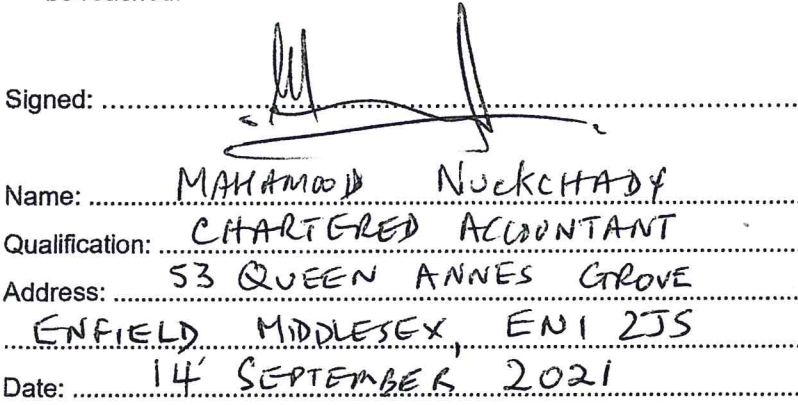 Signed:
Name: MAHAMOOD NUCKCHADY
Qualification: CHARTERED ACCOUNTANT
Address: 53 QUEEN ANNES GROVE
ENFIELD MIDDLESEX, EN1 2JS
Date: 14 SEPTEMBER 2021